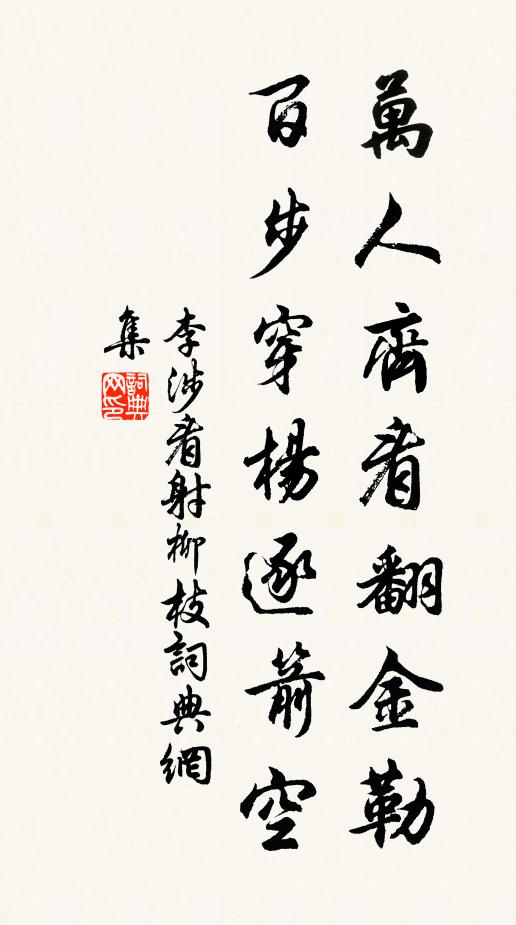 萬人齊看翻金勒
百步穿楊逐箭空
李涉看射柳枝詞典網
集
詞典網印